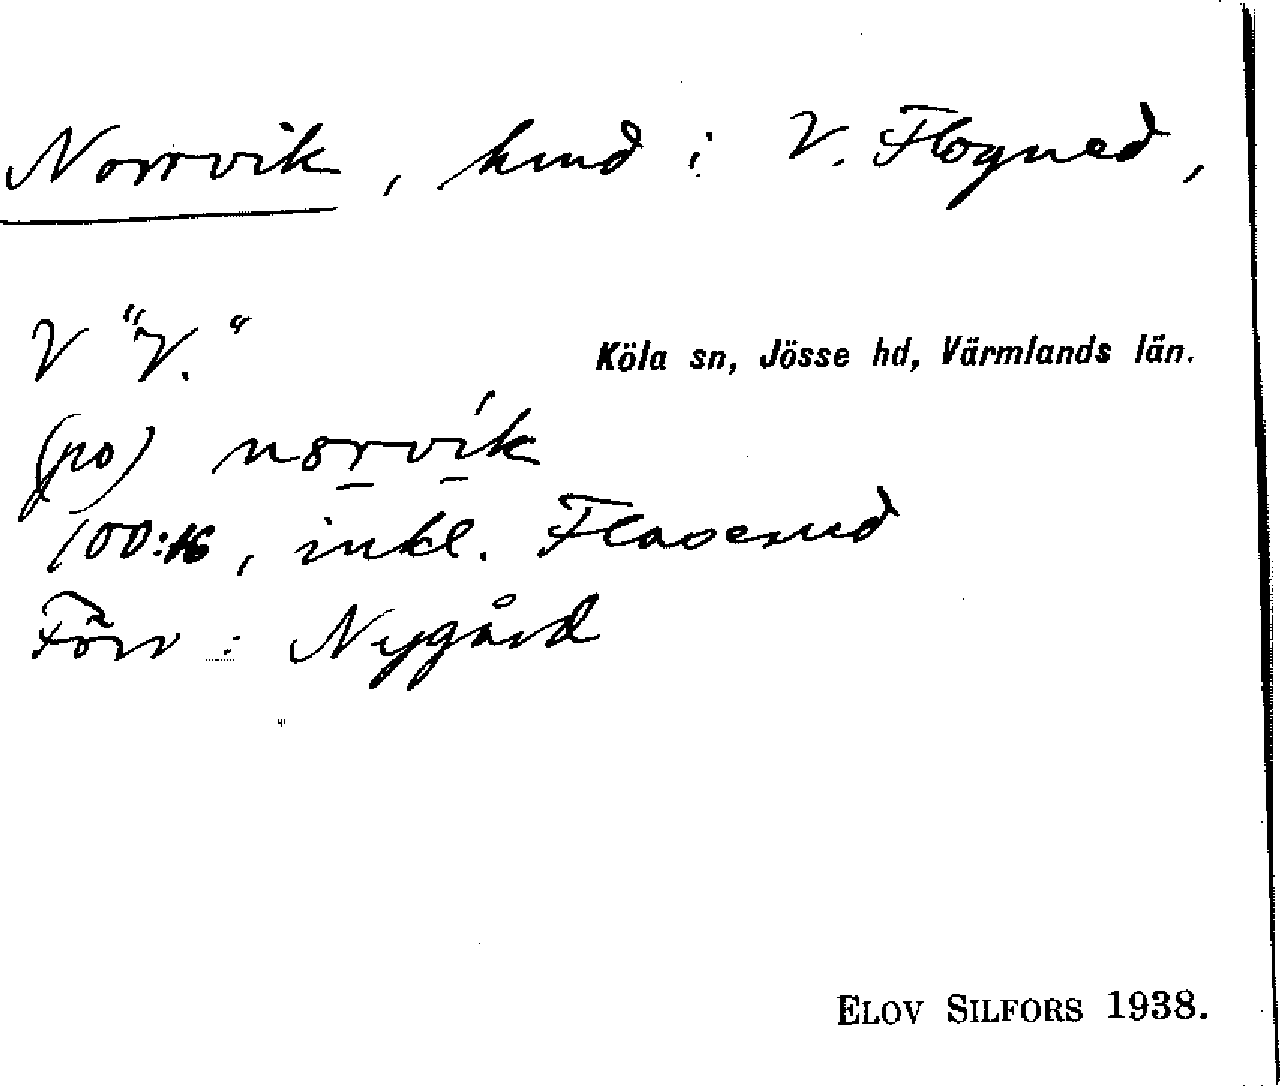 Norrvik, hmd i V. Flogned,
V "V."
Köla sn, Jösse hd, Värmlands län.
(po) norvik
100:16, inkl. Flaserud
Förr : Nygård
ELOV SILFORS 1938.